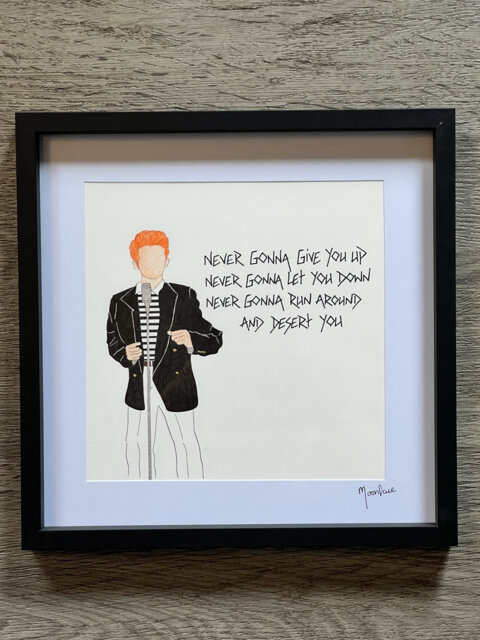 NEVER GONNA GIVE YOU UP
NEVER GONNA LET YOU DOWN
NEVER GONNA RUN AROUND
AND DESERT YOU